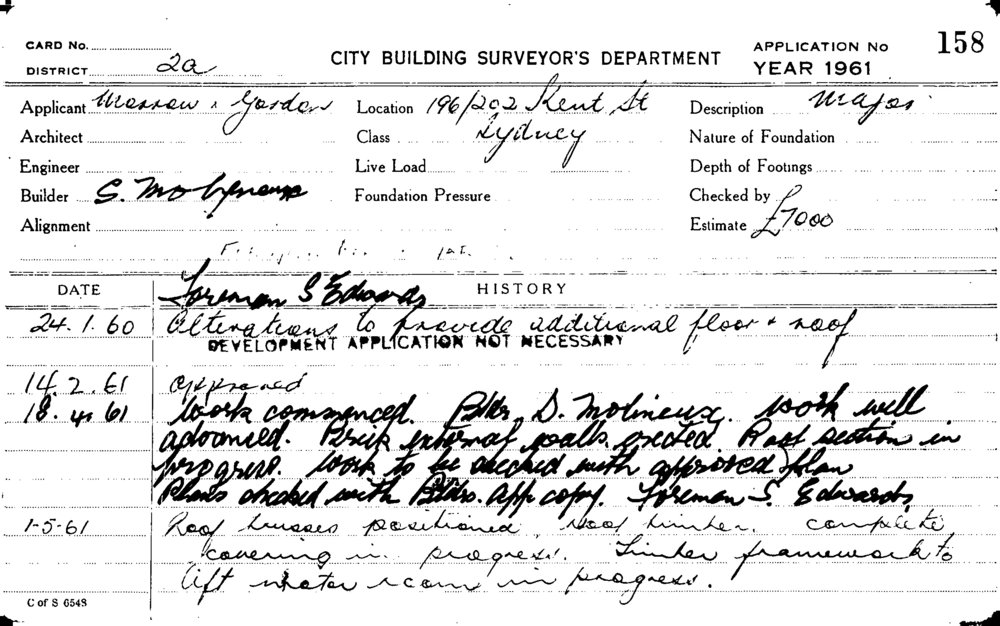 CARD No.
DISTRICT 2a
CITY BUILDING SURVEYOR'S DEPARTMENT
APPLICATION No 158
YEAR 1961
Applicant Morrow & Gordon Location 196/202 Kent St Description Major
Architect Class Sydney Nature of Foundation
Engineer Live Load Depth of Footings
Builder S. Molyneux Foundation Pressure Checked by
Alignment Estimate £7000
DATE HISTORY
Foreman S Edwards
24.1.60 Alterations to provide additional floor & roof
DEVELOPMENT APPLICATION NOT NECESSARY
14.2.61 Approved
18.4.61 Work commenced. Bldr D. Molineux. Work well
advanced. Brick external walls erected Roof section in
progress. Work to be checked with approved plan
Plans checked with Bldrs. app copy. Foreman S. Edwards,
1-5-61 Roof trusses positioned, roof timber. complete
covering in progress. Timber framework to
lift motor room in progress.
C of S 6548